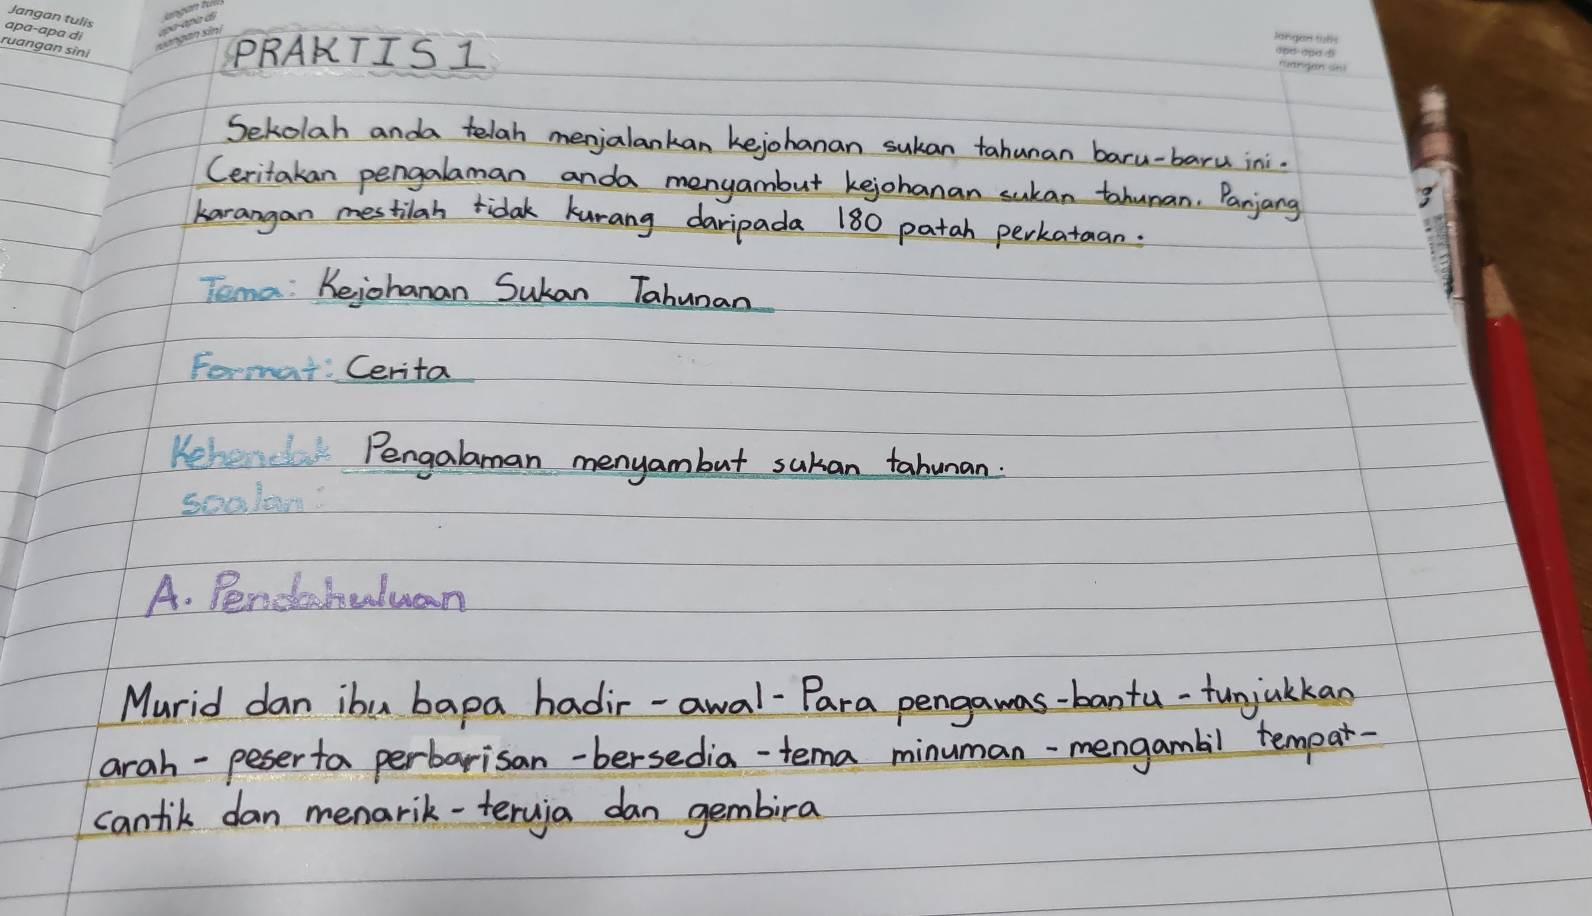 Jangan tulis
apa-apa di
ruangan sini
Jangan tulis
apa-apa di
ruangan sini
Jangan tulis
apa-apa di
ruangan sini
PRAKTIS 1
Sekolah anda telah menjalankan kejohanan sukan tahunan baru-baru ini.
Ceritakan pengalaman anda menyambut kejohanan sukan tahunan. Panjang
karangan mestilah tidak kurang daripada 180 patah perkataan.
Tema: Kejohanan Sukan Tahunan
Format: Cerita
Kehendak Pengalaman menyambut sukan tahunan.
soalan:
A. Pendahuluan
Murid dan ibu bapa hadir - awal - Para pengawas - bantu - tunjukkan
arah - peserta perbarisan - bersedia - tema minuman - mengambil tempat -
cantik dan menarik - teruja dan gembira